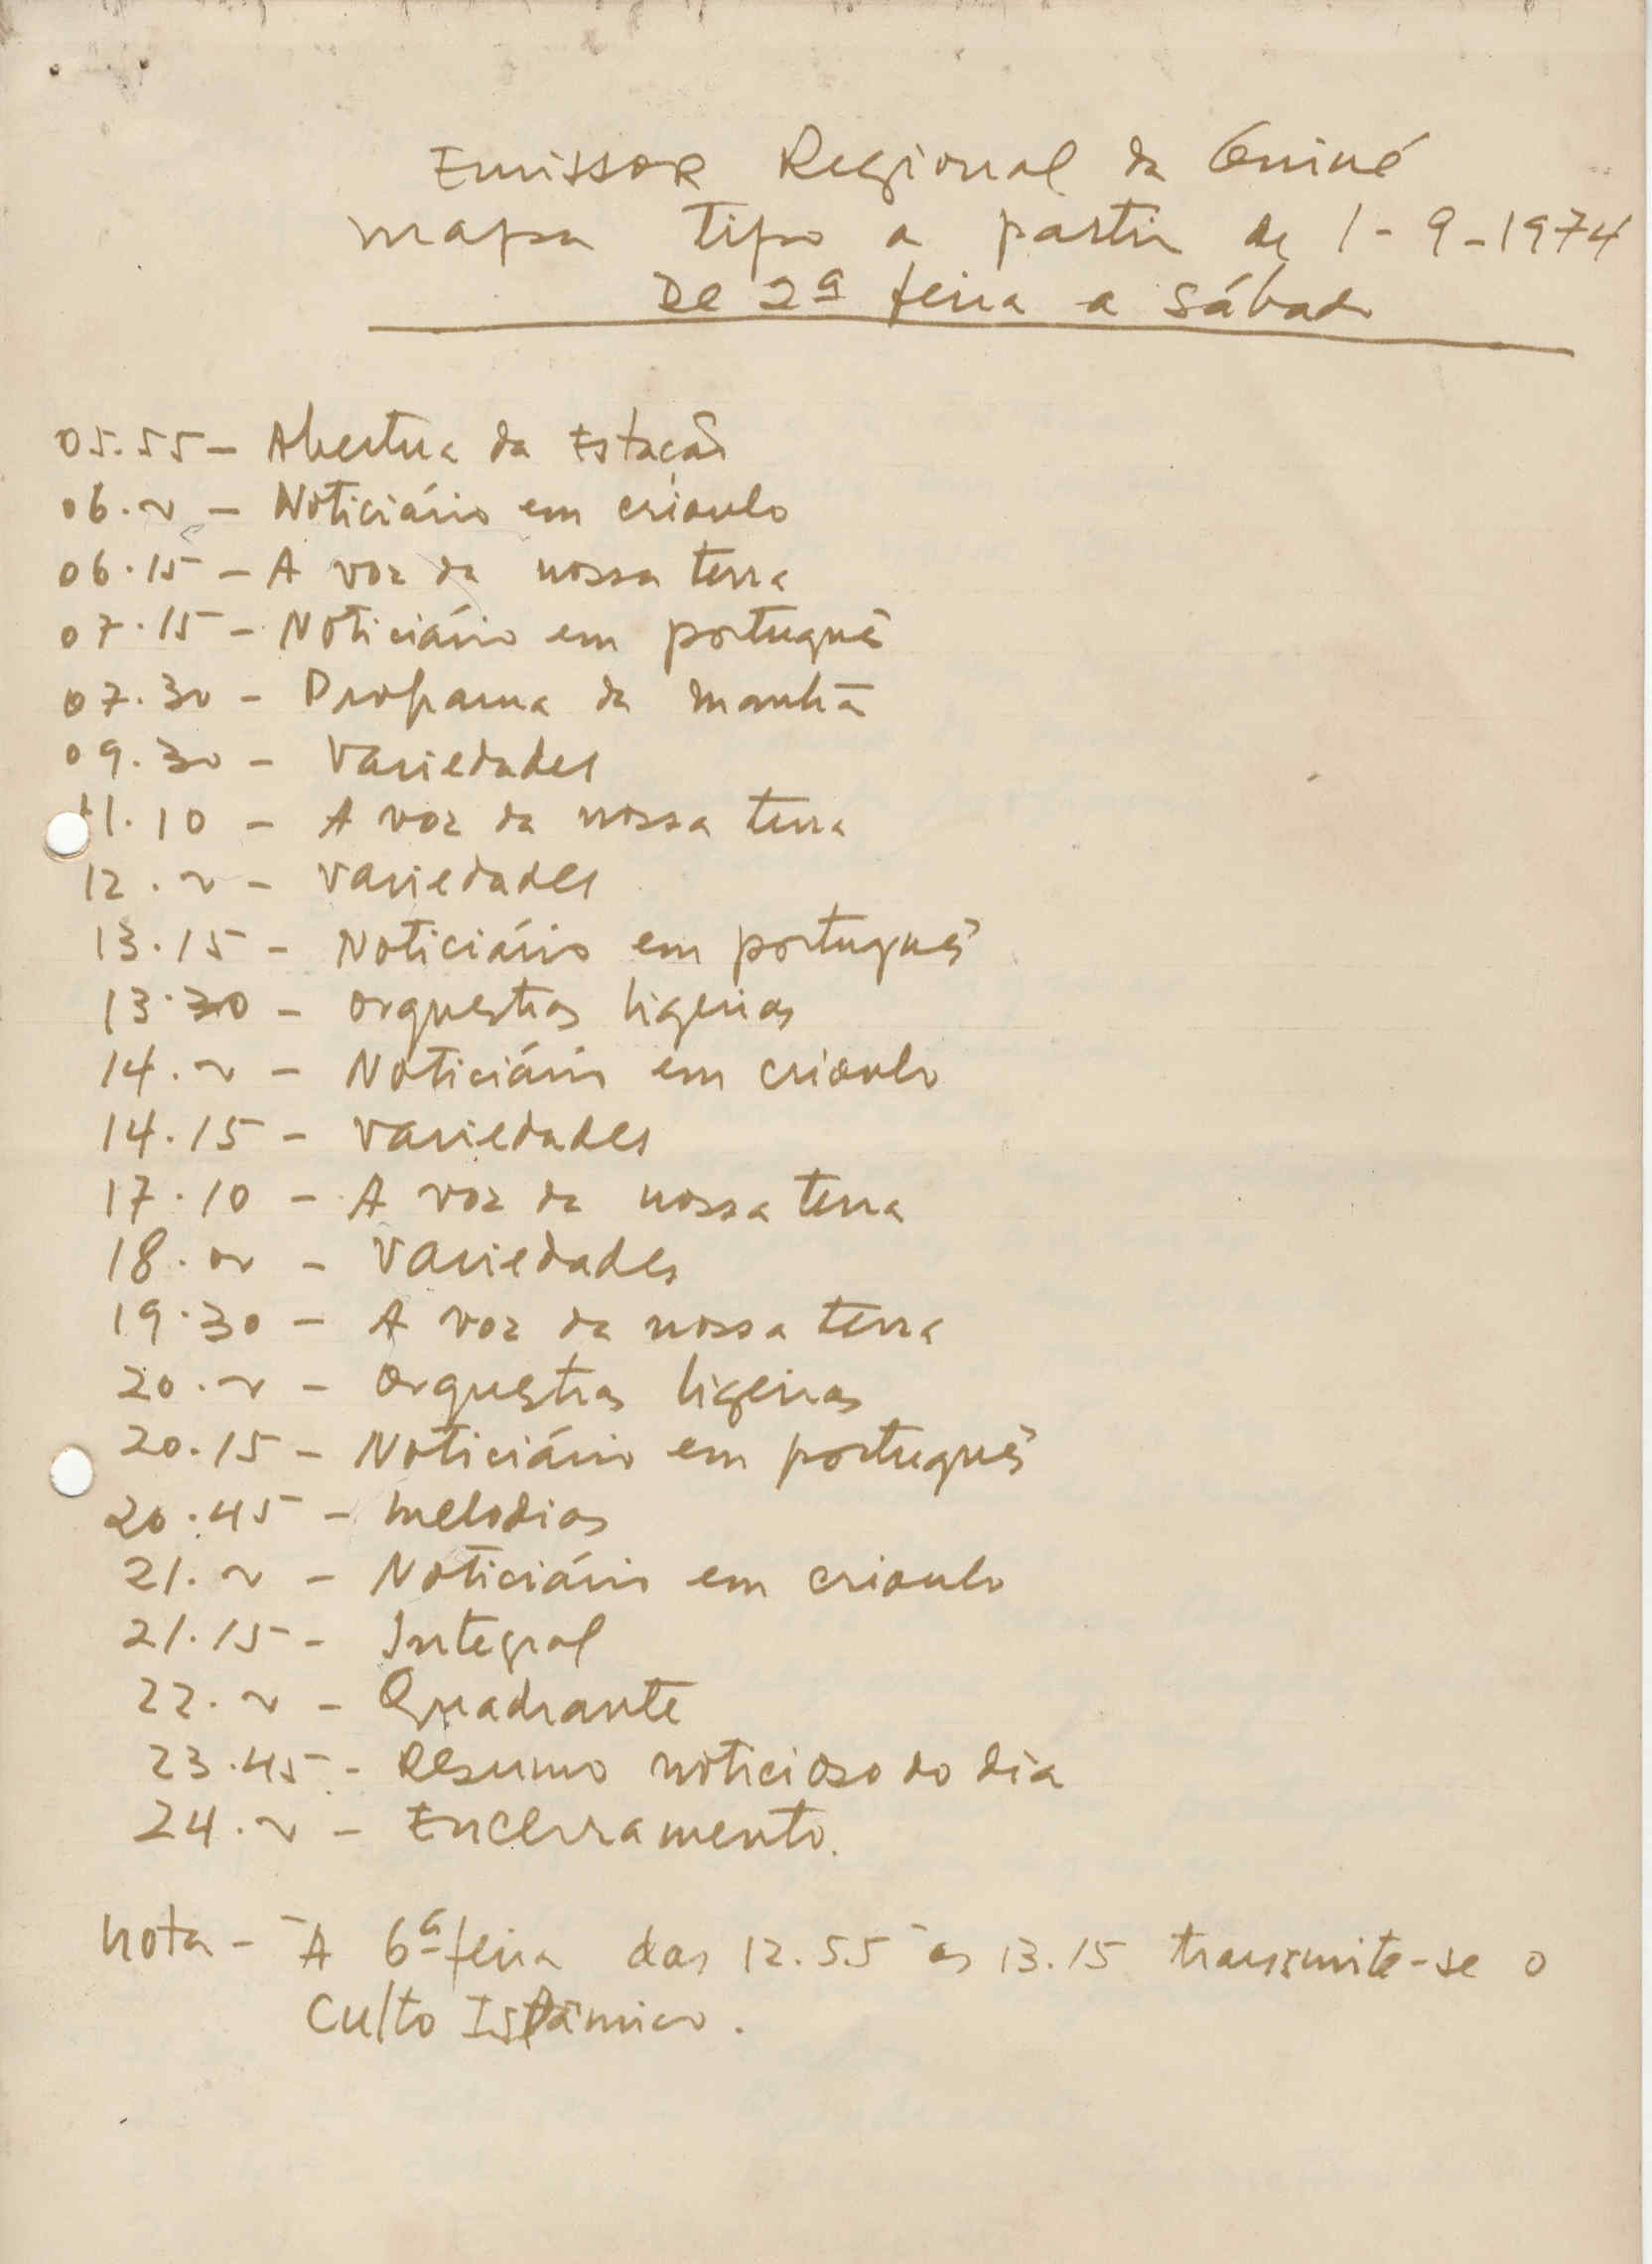 Emissor Regional da Guiné
mapa tipo a partir de 1-9-1974
De 2ª feira a Sábado
05.55 - Abertura da Estação
06.00 - Noticiário em crioulo
06.15 - A voz da nossa terra
07.15 - Noticiário em português
07.30 - Programa da manhã
09.30 - Variedades
11.10 - A voz da nossa terra
12.00 - Variedades
13.15 - Noticiário em português
13.30 - Orquestras ligeiras
14.00 - Noticiário em crioulo
14.15 - Variedades
17.10 - A voz da nossa terra
18.00 - Variedades
19.30 - A voz da nossa terra
20.00 - Orquestras ligeiras
20.15 - Noticiário em português
20.45 - Melodias
21.00 - Noticiário em crioulo
21.15 - Integral
22.00 - Quadrante
23.45 - Resumo noticioso do dia
24.00 - Encerramento.
Nota - À 6ª feira das 12.55 às 13.15 transmite-se o
Culto Islâmico.